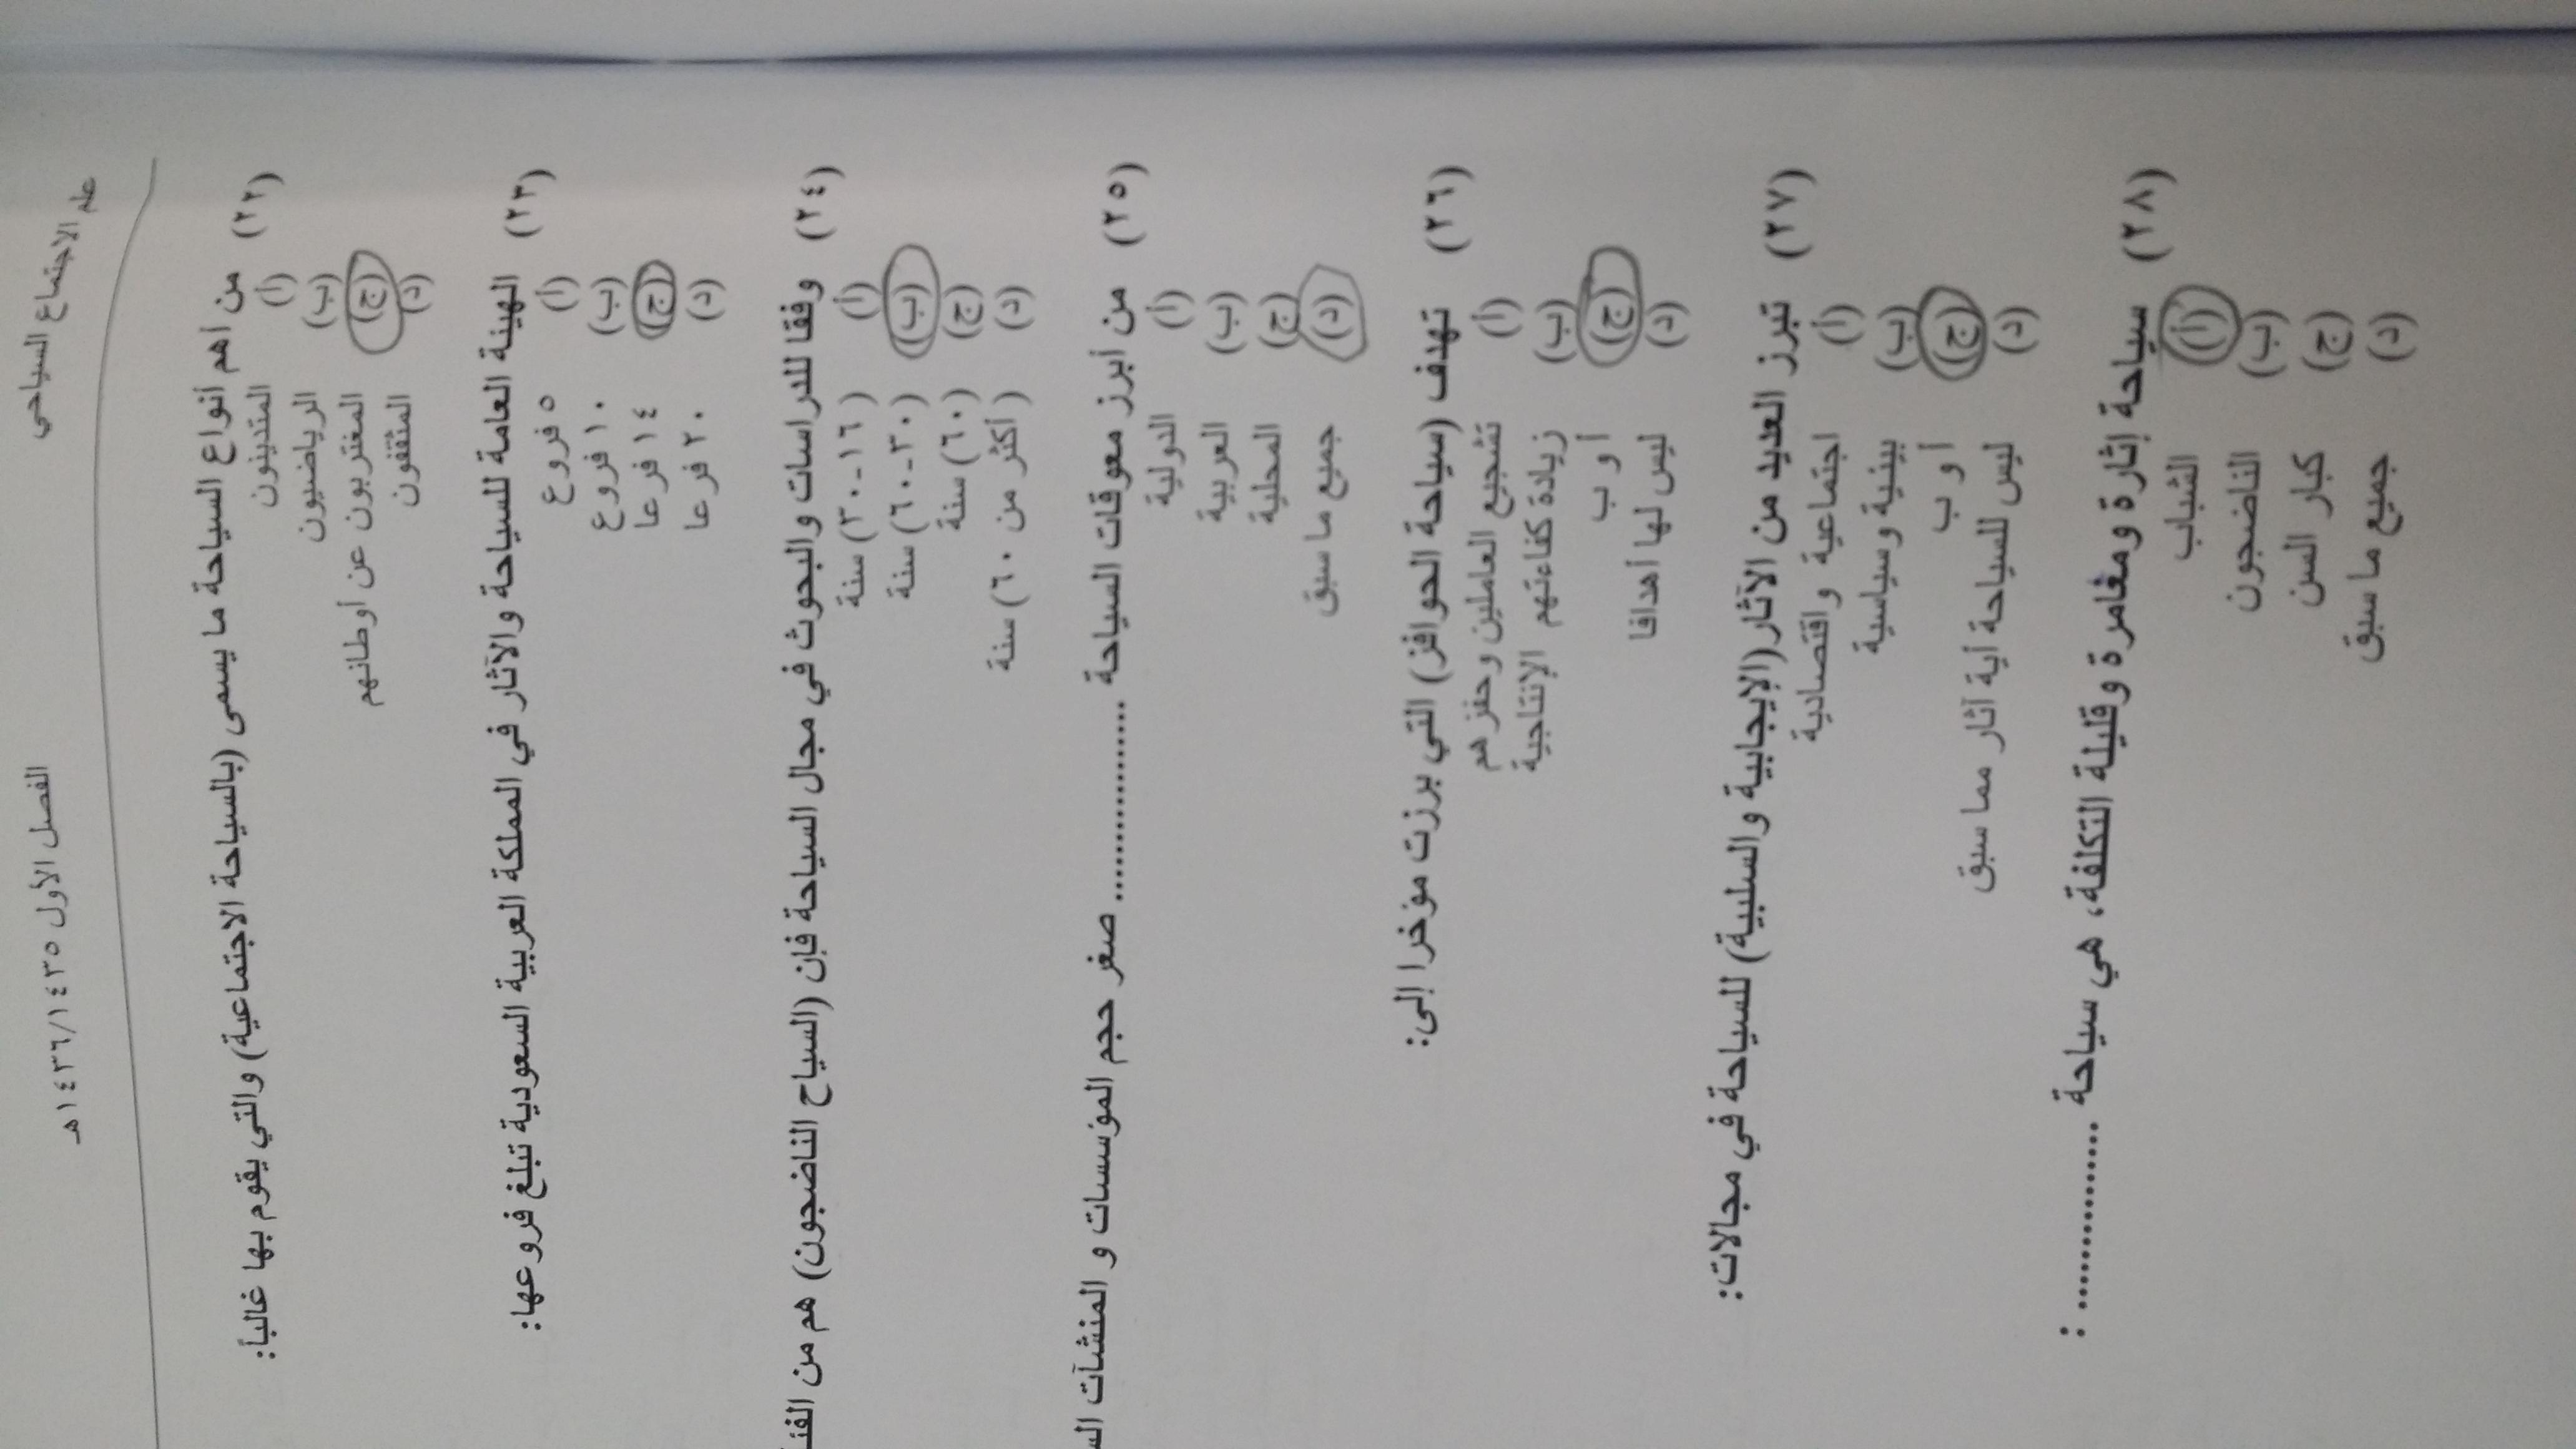 علم الاجتماع السياحي
الفصل الأول ١٤٣٦/١٤٣٥هـ
(٢٢) من أهم أنواع السياحة ما يسمى (بالسياحة الاجتماعية) والتي يقوم بها غالباً:
(أ) المتدينون
(ب) الرياضيون
(ج) المغتربون عن أوطانهم
(د) المثقفون
(٢٣) الهيئة العامة للسياحة والآثار في المملكة العربية السعودية تبلغ فروعها:
(أ) ٥ فروع
(ب) ١٠ فروع
(ج) ١٤ فرعا
(د) ٢٠ فرعا
(٢٤) وفقا للدراسات والبحوث في مجال السياحة فإن (السياح الناضجون) هم من
(أ) (١٦-٣٠) سنة
(ب) (٣٠-٦٠) سنة
(ج) (٦٠) سنة
(د) (أكثر من ٦٠) سنة
(٢٥) من أبرز معوقات السياحة .................... صغر حجم المؤسسات و المنشآت
(أ) الدولية
(ب) العربية
(ج) المحلية
(د) جميع ما سبق
(٢٦) تهدف (سياحة الحوافز) التي برزت مؤخرا إلى:
(أ) تشجيع العاملين وحفزهم
(ب) زيادة كفاءتهم الإنتاجية
(ج) أ و ب
(د) ليس لها أهدافا
(٢٧) تبرز العديد من الآثار(الإيجابية والسلبية) للسياحة في مجالات:
(أ) اجتماعية واقتصادية
(ب) بيئية وسياسية
(ج) أ و ب
(د) ليس للسياحة أية آثار مما سبق
(٢٨) سياحة إثارة ومغامرة وقليلة التكلفة، هي سياحة ...................:
(أ) الشباب
(ب) الناضجون
(ج) كبار السن
(د) جميع ما سبق